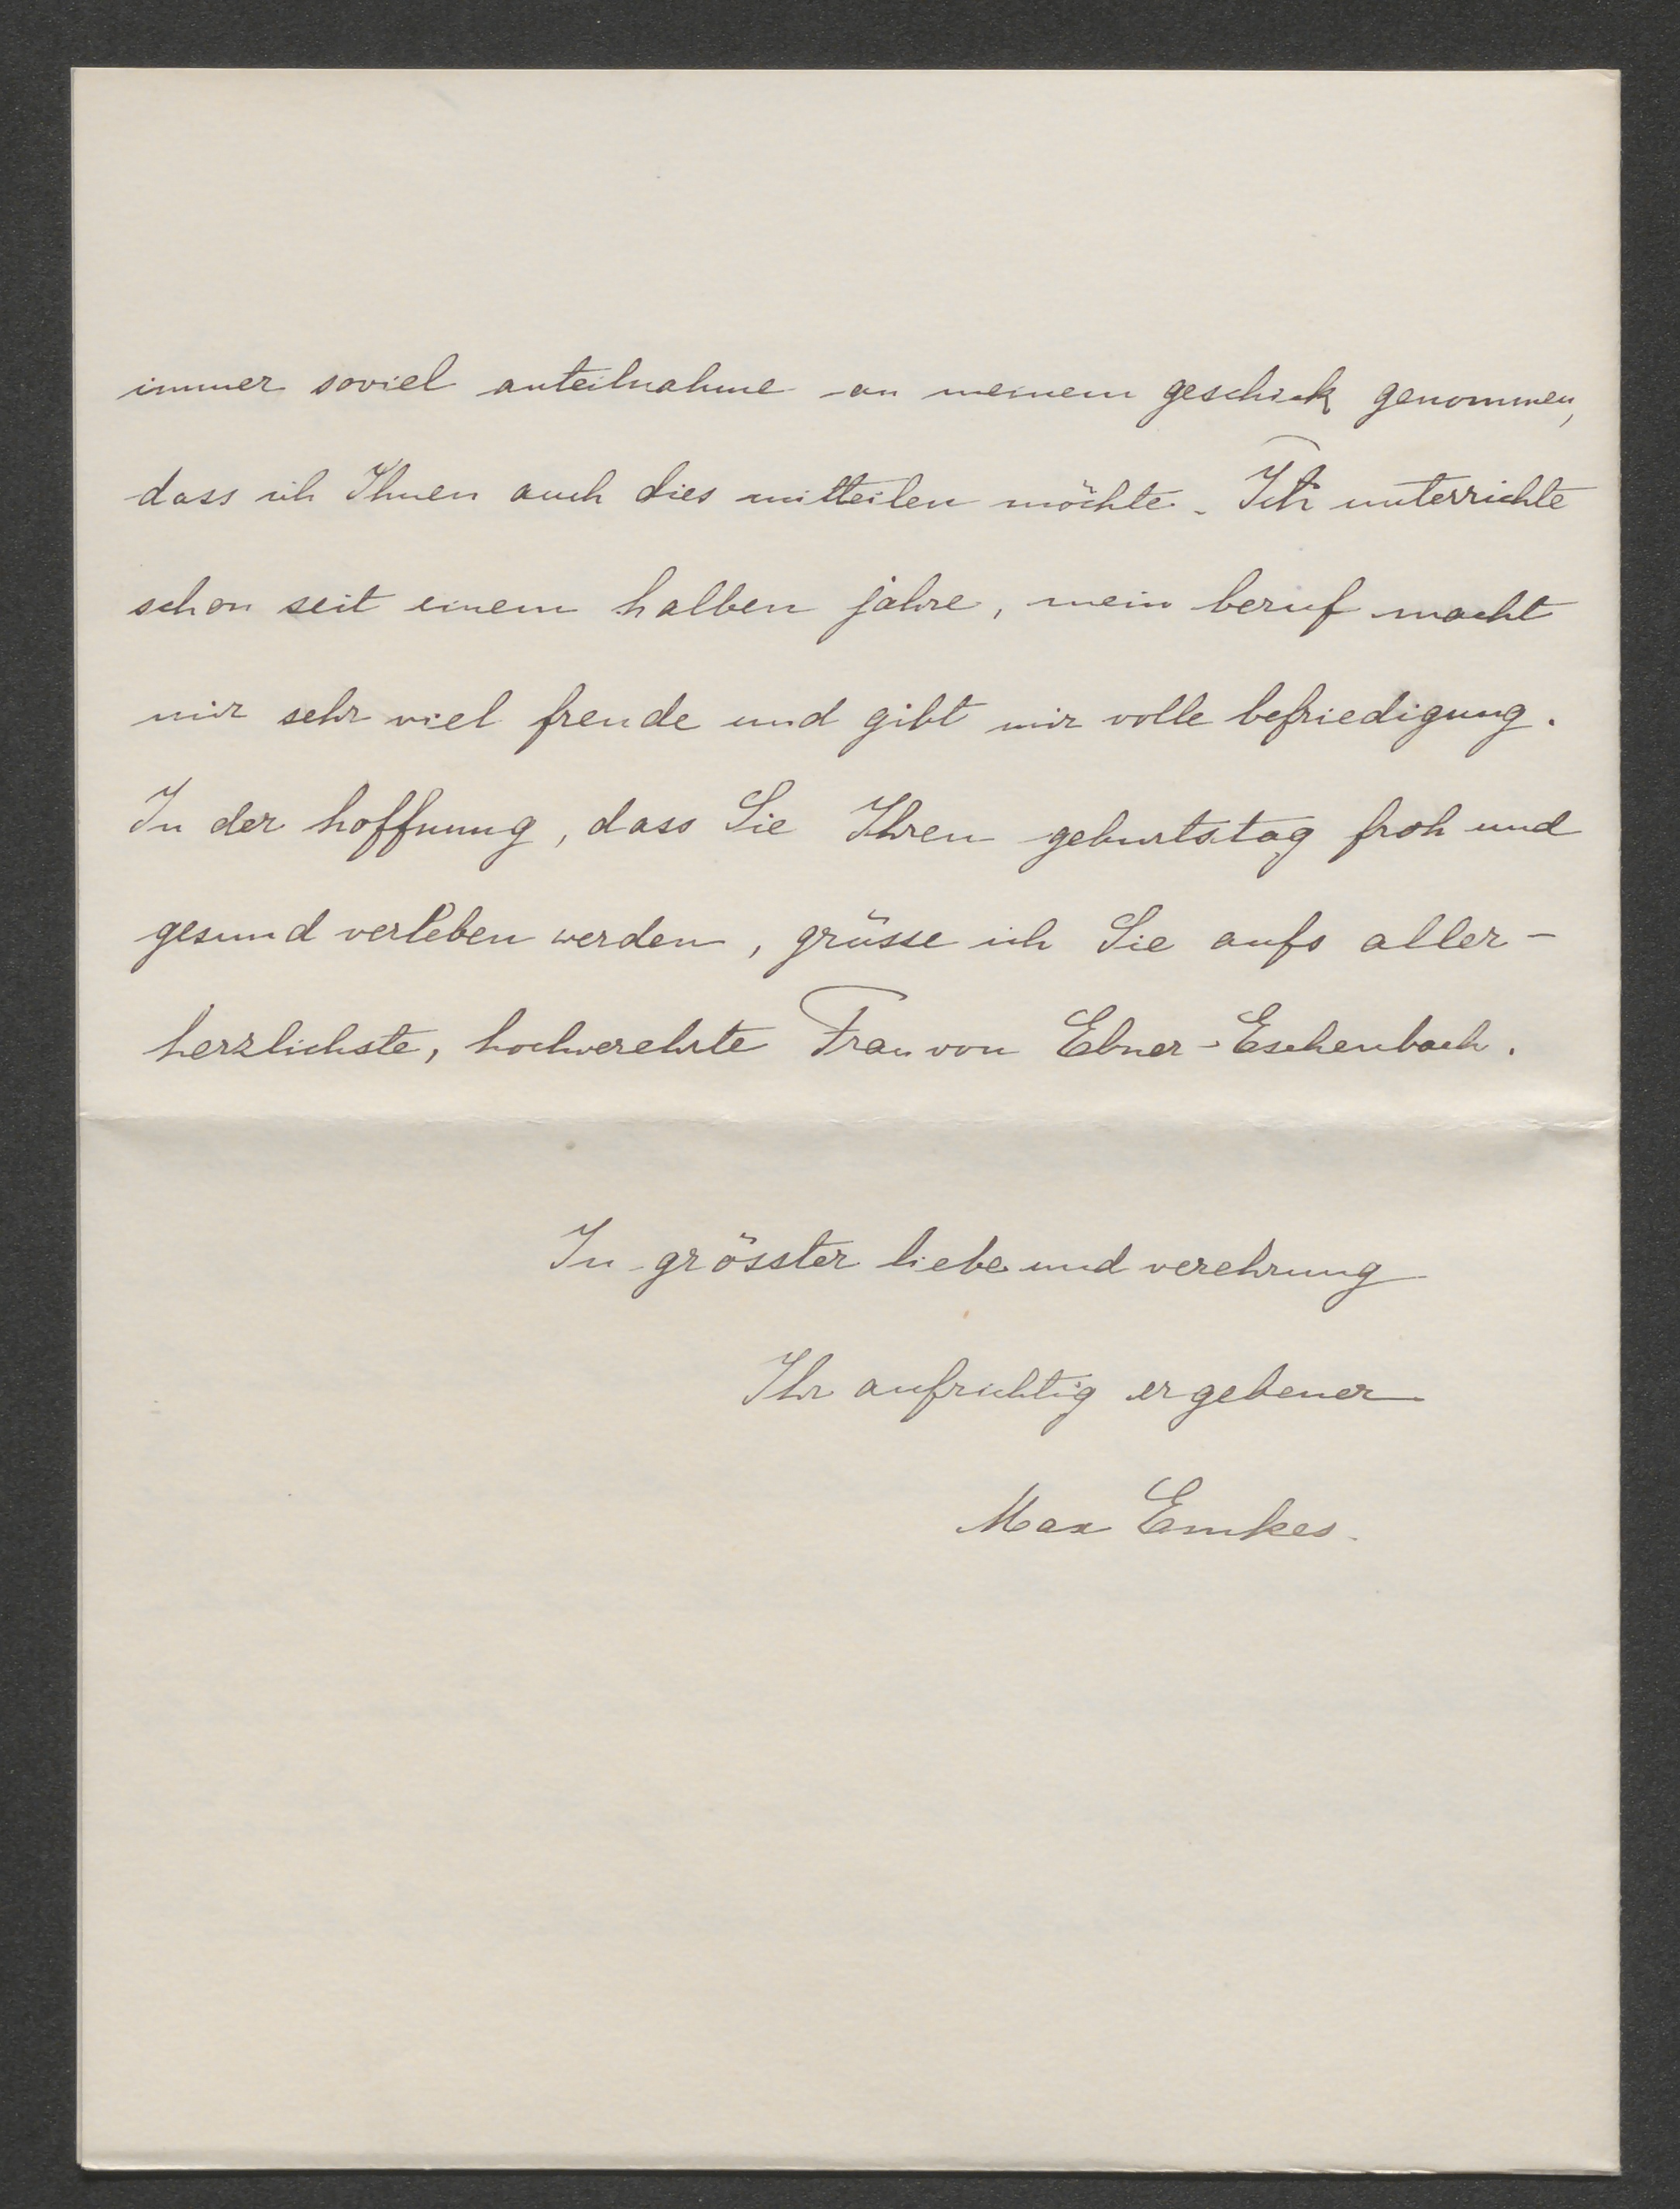 immer soviel anteilnahme an meinem geschick genommen,
dass ich Ihnen auch dies mitteilen möchte. Ich unterrichte
schon seit einem halben jahre, mein beruf macht
mir sehr viel freude und gibt mir volle befriedigung.
In der hoffnung, dass Sie Ihren geburtstag froh und
gesund verleben werden, grüsse ich Sie aufs aller-
herzlichste, hochverehrte Frau von Ebner-Eschenbach.
In grösster liebe und verehrung
Ihr aufrichtig ergebener
Max Emkes.